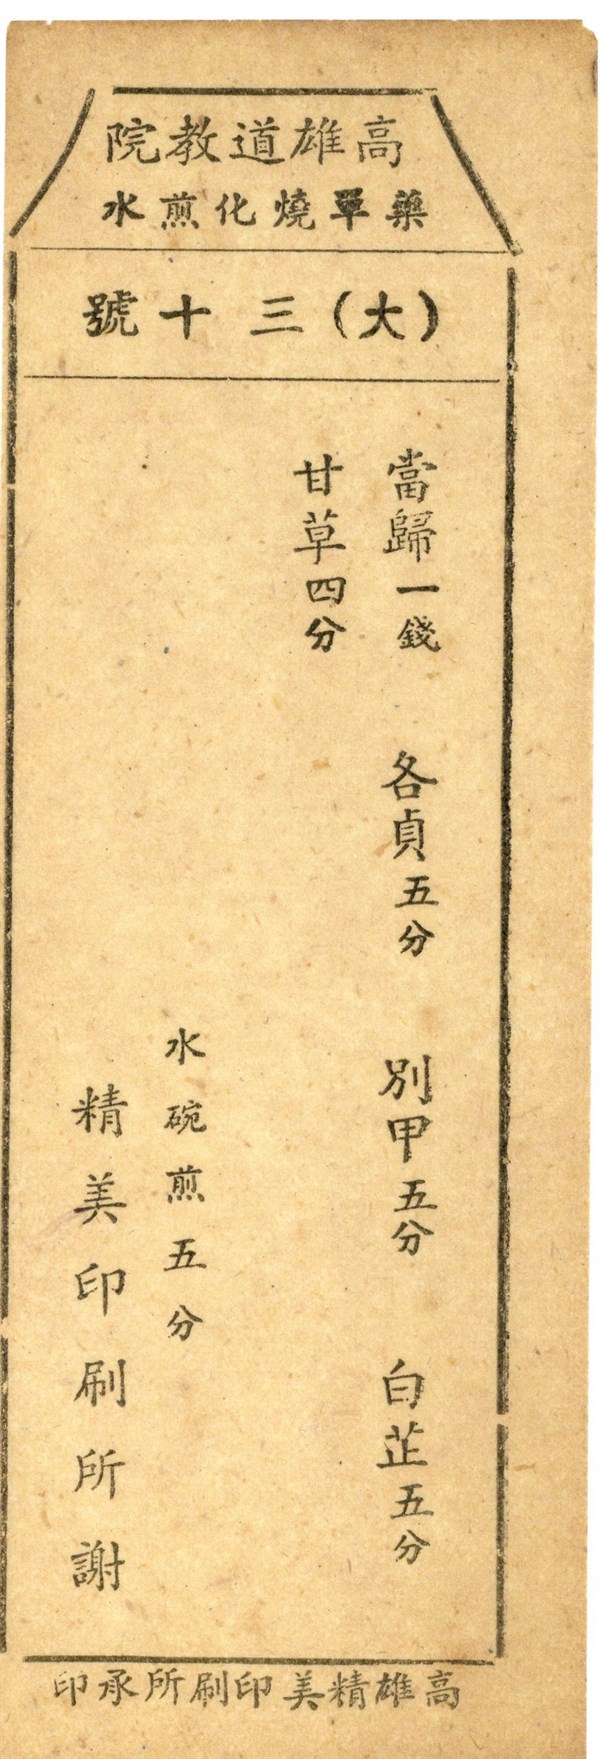 高雄道教院
藥單燒化煎水
(大)三十號
當歸一錢 各貞五分 別甲五分 白芷五分
甘草四分
水碗煎五分
精美印刷所謝
高雄精美印刷所承印